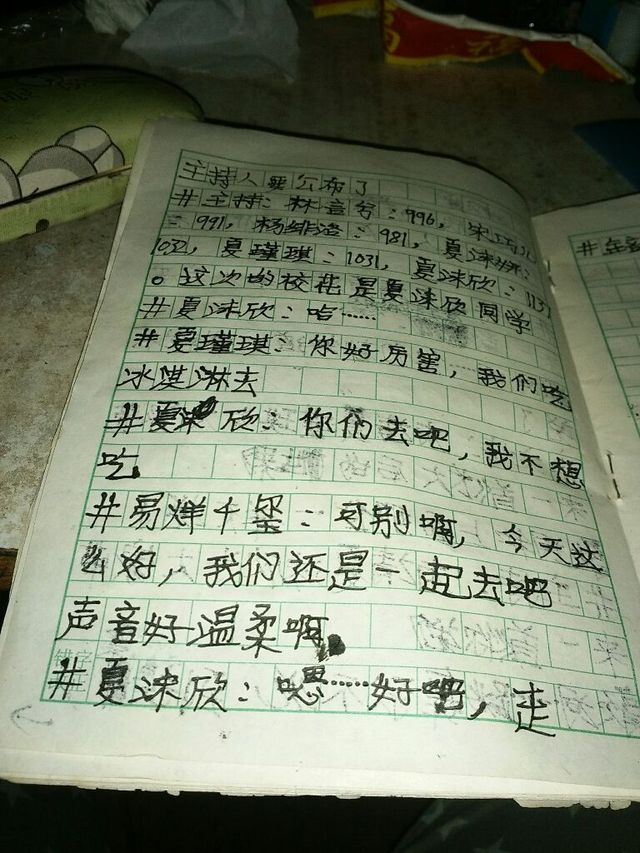 主持人要公布了
#主持:林言兮:996,宋巧儿
:991,杨绯洛:981,夏沫妍:
1032,夏瑾琪:1031,夏沫欣:113
。这次的校花是夏沫欣同学
#夏沫欣:哈……
#夏瑾琪:你好厉害,我们吃
冰淇淋去
#夏沫欣:你们去吧,我不想
吃
#易烊千玺:可别啊,今天这
么好,我们还是一起去吧
声音好温柔啊
#夏沫欣:嗯……好吧,走